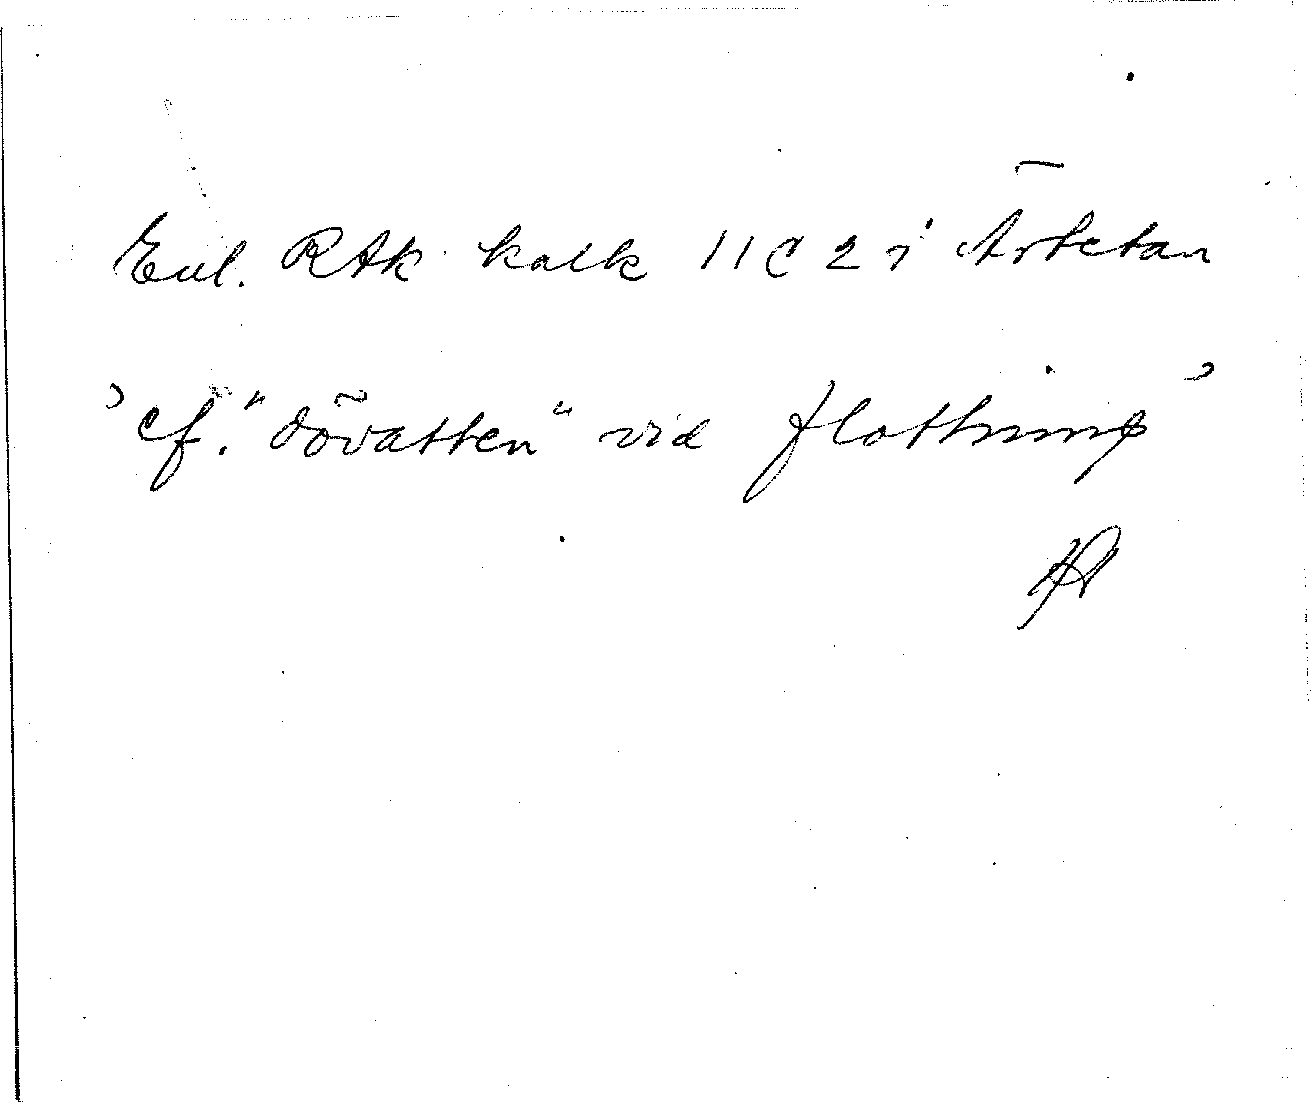 Enl. RAk kalk 11 C 2 i Ärtetan
’cf. "dövatten" vid flottning’